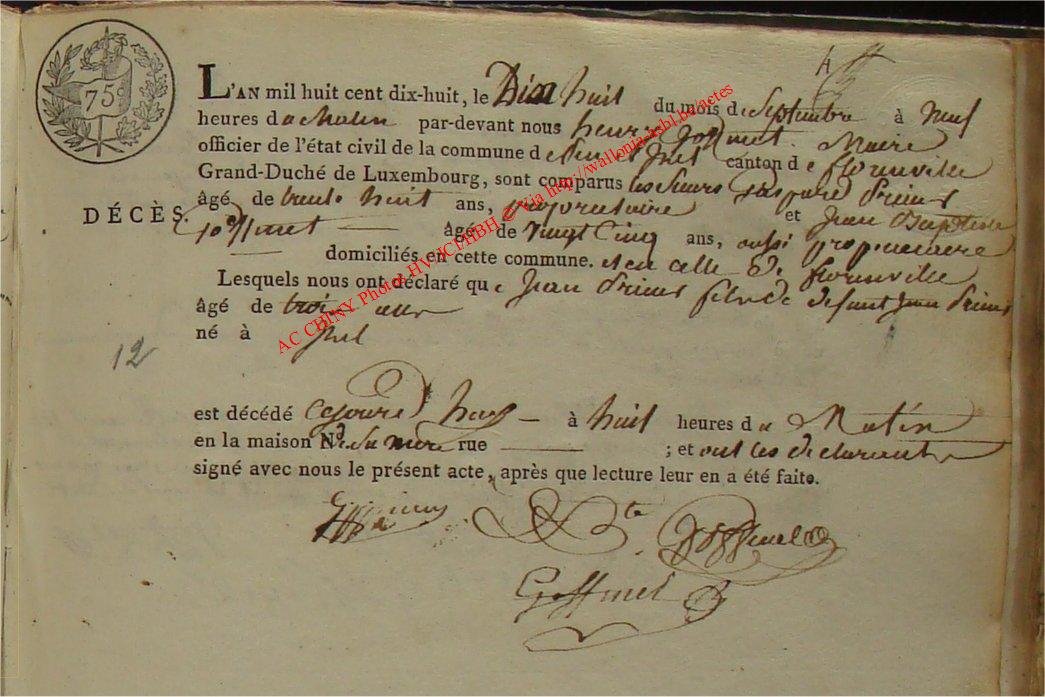 75 c
L'AN mil huit cent dix-huit, le Dix huit du mois de Septembre à neuf
heures du Matin par-devant nous henri goffinet Maire
officier de l'état civil de la commune d canton de florenville
Grand-Duché de Luxembourg, sont comparus les sieurs
DÉCÈS.
âgé de trente huit ans, proprietaire et Jean Baptiste
goffinet âgé de vingt Cinq ans, aussi proprietaire
domiciliés en cette commune. et en celle de florenville
Lesquels nous ont déclaré que Jean fils de defunt Jean
âgé de trois ans
né à
12
est décédé cejourd huy à huit heures du Matin
en la maison N.º de sa mere rue ; et ont les declarants
signé avec nous le présent acte, après que lecture leur en a été faite.
goffinet
Goffinet
AC CHINY Photos HVJCTHBH © Via http://wallonia-asbl.be/actes